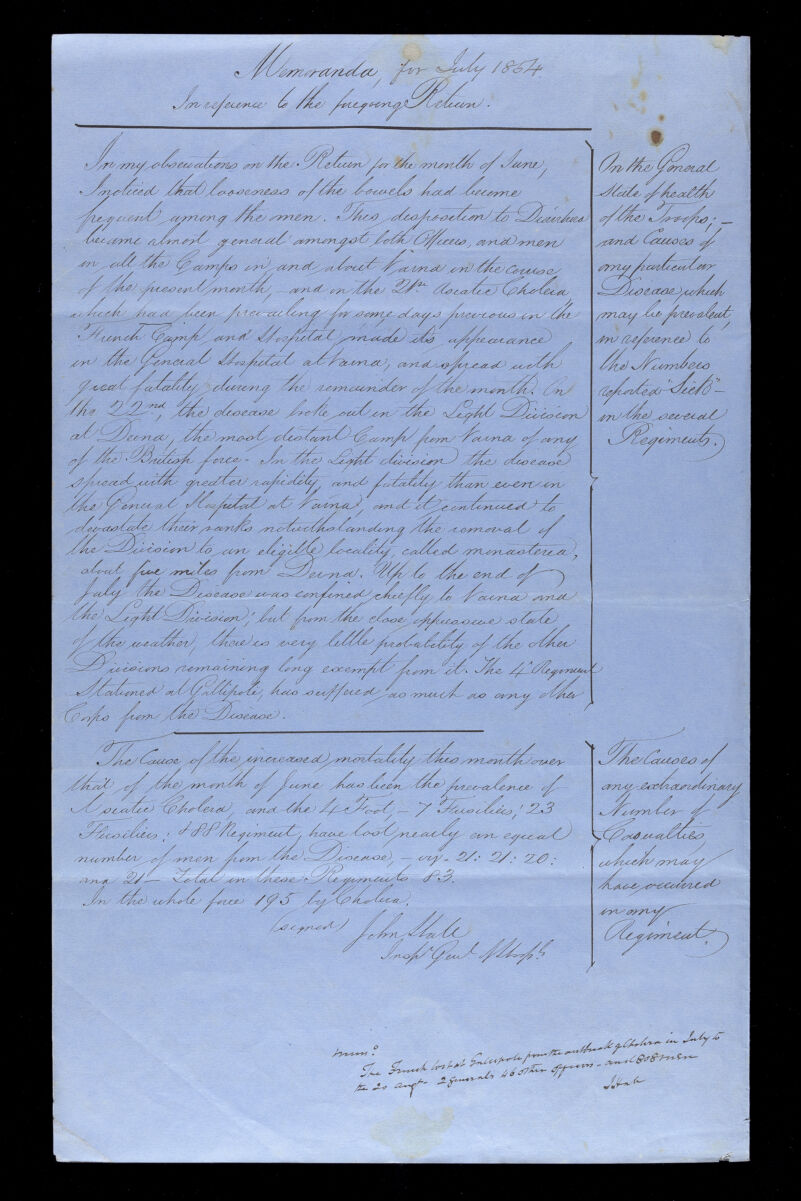 Memoranda, for July 1854
In reference to the foregoing Return.
In my observations on the Return for the month of June,
I noticed that looseness of the bowels had become
frequent among the men. This disposition to Diarrhœa
became almost general amongst both Officers, and men
in all the Camps in and about Varna in the course
of the present month, and on the 21st Asiatic Cholera
which had been prevailing for some days previous in the
French Camp and Hospital made its appearance
in the General Hospital at Varna, and spread with
great fatality during the remainder of the month. On
the 22nd, the disease broke out in the Light Division
at Devna, the most distant Camp from Varna of any
of the British force. In the Light division the disease
spread with greater rapidity and fatality than even in
the General Hospital at Varna and it continued to
devastate their ranks notwithstanding the removal of
the Division to an eligible locality, called monasterea,
about five miles from Devna. Up to the end of
July the Disease was confined chiefly to Varna and
the Light Division; but from the close oppressive state
of the weather, there is very little probability of the other
Divisions remaining long exempt from it. The 4th Regiment
Stationed at Gallipoli, has suffered as much as any other
Corps from the Disease.
On the General
State of health
of the Troops; —
and Causes of
any particular
Disease which
may be prevalent,
in reference to
the Numbers
reported "Sick" —
in the several
Regiments.
The Cause of the increased mortality this month over
that of the month of June has been the prevalence of
Asiatic Cholera, and the 4 Foot, — 7 Fusiliers; 23
Fusiliers; & 88 Regiment, have lost nearly an equal
number of men from the Disease, — viz. 21: 21: 20:
and 21 — Total in these Regiments 83.
In the whole force 195 by Cholera.
(signed) John Hall
Inspr Genl Hospls
The Causes of
any extraordinary
Number of
Casualties
which may
have occurred
in any
Regiment.
Memo.
The French lost at Gallipoli from the outbreak of Cholera in July to
the 20 Augt 2 Generals 46 other officers — and 808 men
J Hall